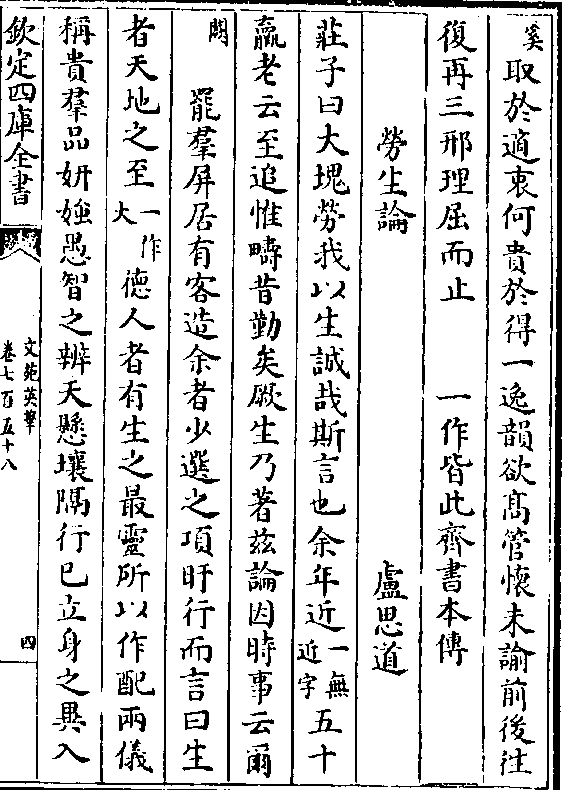 奚取於適衷何貴於得一逸韻欲髙管懷未諭前後往
復再三邢理屈而止 一作皆此齊書本傳
勞生論 盧思道
莊子曰大塊勞我以生誠哉斯言也余年近一無近字五十
羸老云至追惟疇昔勤矣厥生乃著兹論因時事云爾
罷羣屏居有客造余者少選之項盱行而言曰生
閲
者天地之至一作大德人者有生之最靈所以作配兩儀
稱貴羣品妍媸愚智之辨天懸壤隔行已立身之異入
欽定四庫全書
文苑英華
卷七百五十八
四